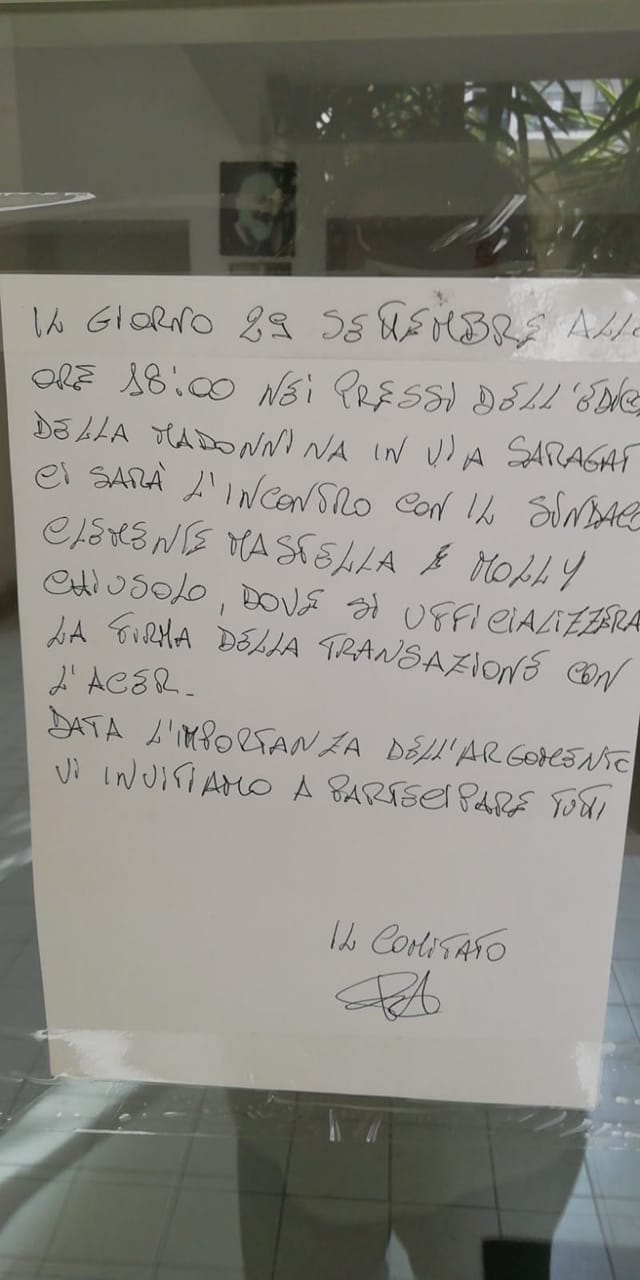 IL GIORNO 29 SETTEMBRE ALLE
ORE 18:00 NEI PRESSI DELL'EDICO
DELLA MADONNINA IN VIA SARAGAT
CI SARÀ L'INCONTRO CON IL SINDACO
CLEMENTE MASTELLA E MOLLY
CHIUSOLO, DOVE SI UFFICIALIZZERA
LA FIRMA DELLA TRANSAZIONE CON
L'ACER.
DATA L'IMPORTANZA DELL'ARGOMENTO
VI INVITIAMO A PARTECIPARE TUTTI
IL COMITATO